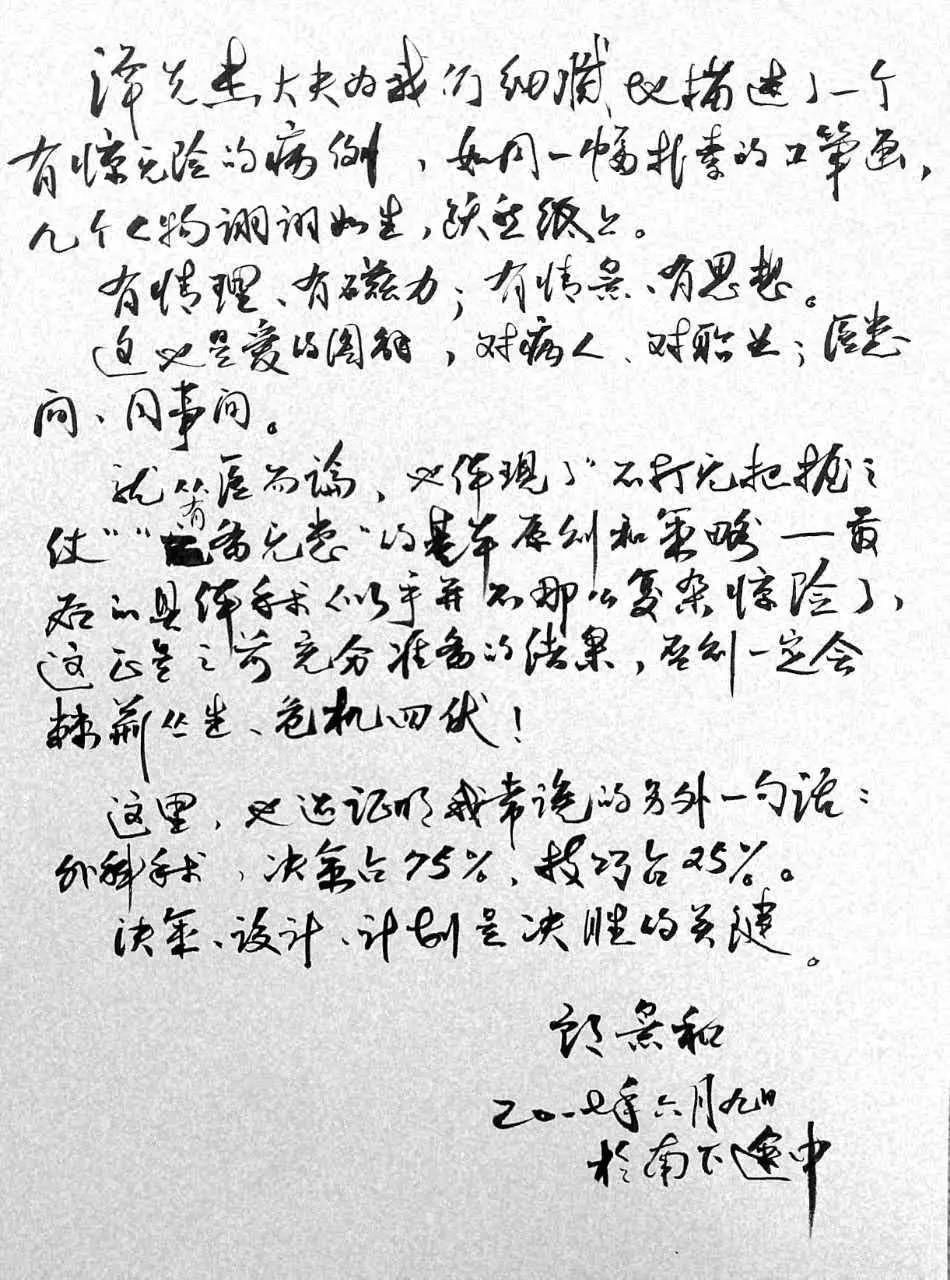 谭先杰大夫为我们细腻地描述了一个
有惊无险的病例，如同一幅朴素的工笔画，
几个人物诩诩如生，跃然纸上。
有情理、有磁力；有情景、有思想。
这也是爱的图解，对病人、对职业；医患
间、同事间。
就从医而论，也体现了“不打无把握之
仗”“有备无患”的基本原则和策略——最
后的具体手术似乎并不那么复杂惊险了，
这正是之前充分准备的结果，否则一定会
棘荆丛生、危机四伏！
这里，也证明我常说的另外一句话：
外科手术，决策占75%，技巧占25%。
决策、设计、计划是决胜的关键。
郎景和
二〇一七年六月九日
於南下途中